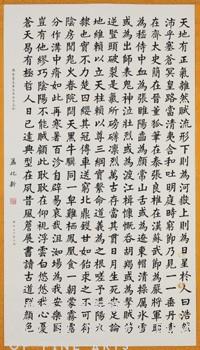 天地有正氣雜然賦流形下則為河嶽上則為日星於人曰浩然
沛乎塞蒼冥皇路當清夷含和吐明庭時窮節乃見一垂丹青
在齊太史簡在晉董狐筆在秦張良椎在漢蘇武節為嚴將軍頭
為嵇侍中血為張睢陽齒為顏常山舌或為遼東帽清操厲冰雪
或為出師表鬼神泣壯烈或為渡江楫慷慨吞胡羯或為擊賊笏
逆豎頭破裂是氣所磅礴凜烈萬古存當其貫日月生死安足論
地維賴以立天柱賴以尊三綱實繫命道義為之根嗟予遘陽九
隸也實不力楚囚纓其冠傳車送窮北鼎鑊甘如飴求之不可得
陰房闃鬼火春院閟天黑牛驥同一皂雞棲鳳凰食一朝蒙霧露
分作溝中瘠如此再寒暑百沴自辟易哀哉沮洳場為我安樂國
豈有他繆巧陰陽不能賊顧此耿耿在仰視浮雲白悠悠我心悲
蒼天曷有極哲人日已遠典型在夙昔風簷展書讀古道照顏色